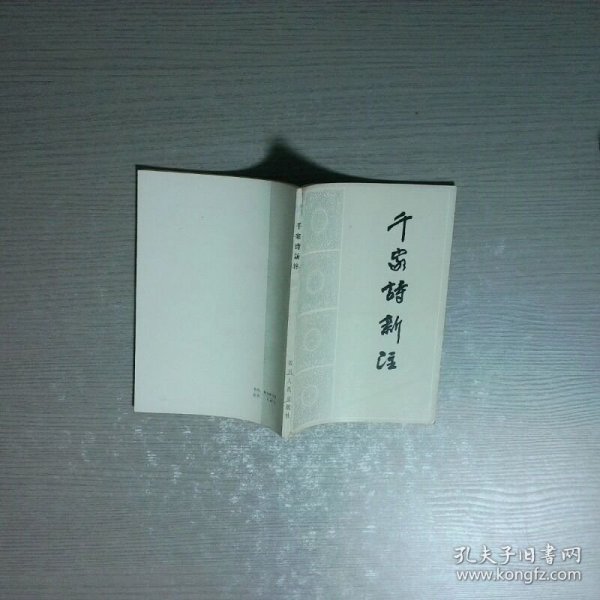 千家詩新注
千家诗新注
四川人民出版社
孔夫子旧书网
www.kongfz.com